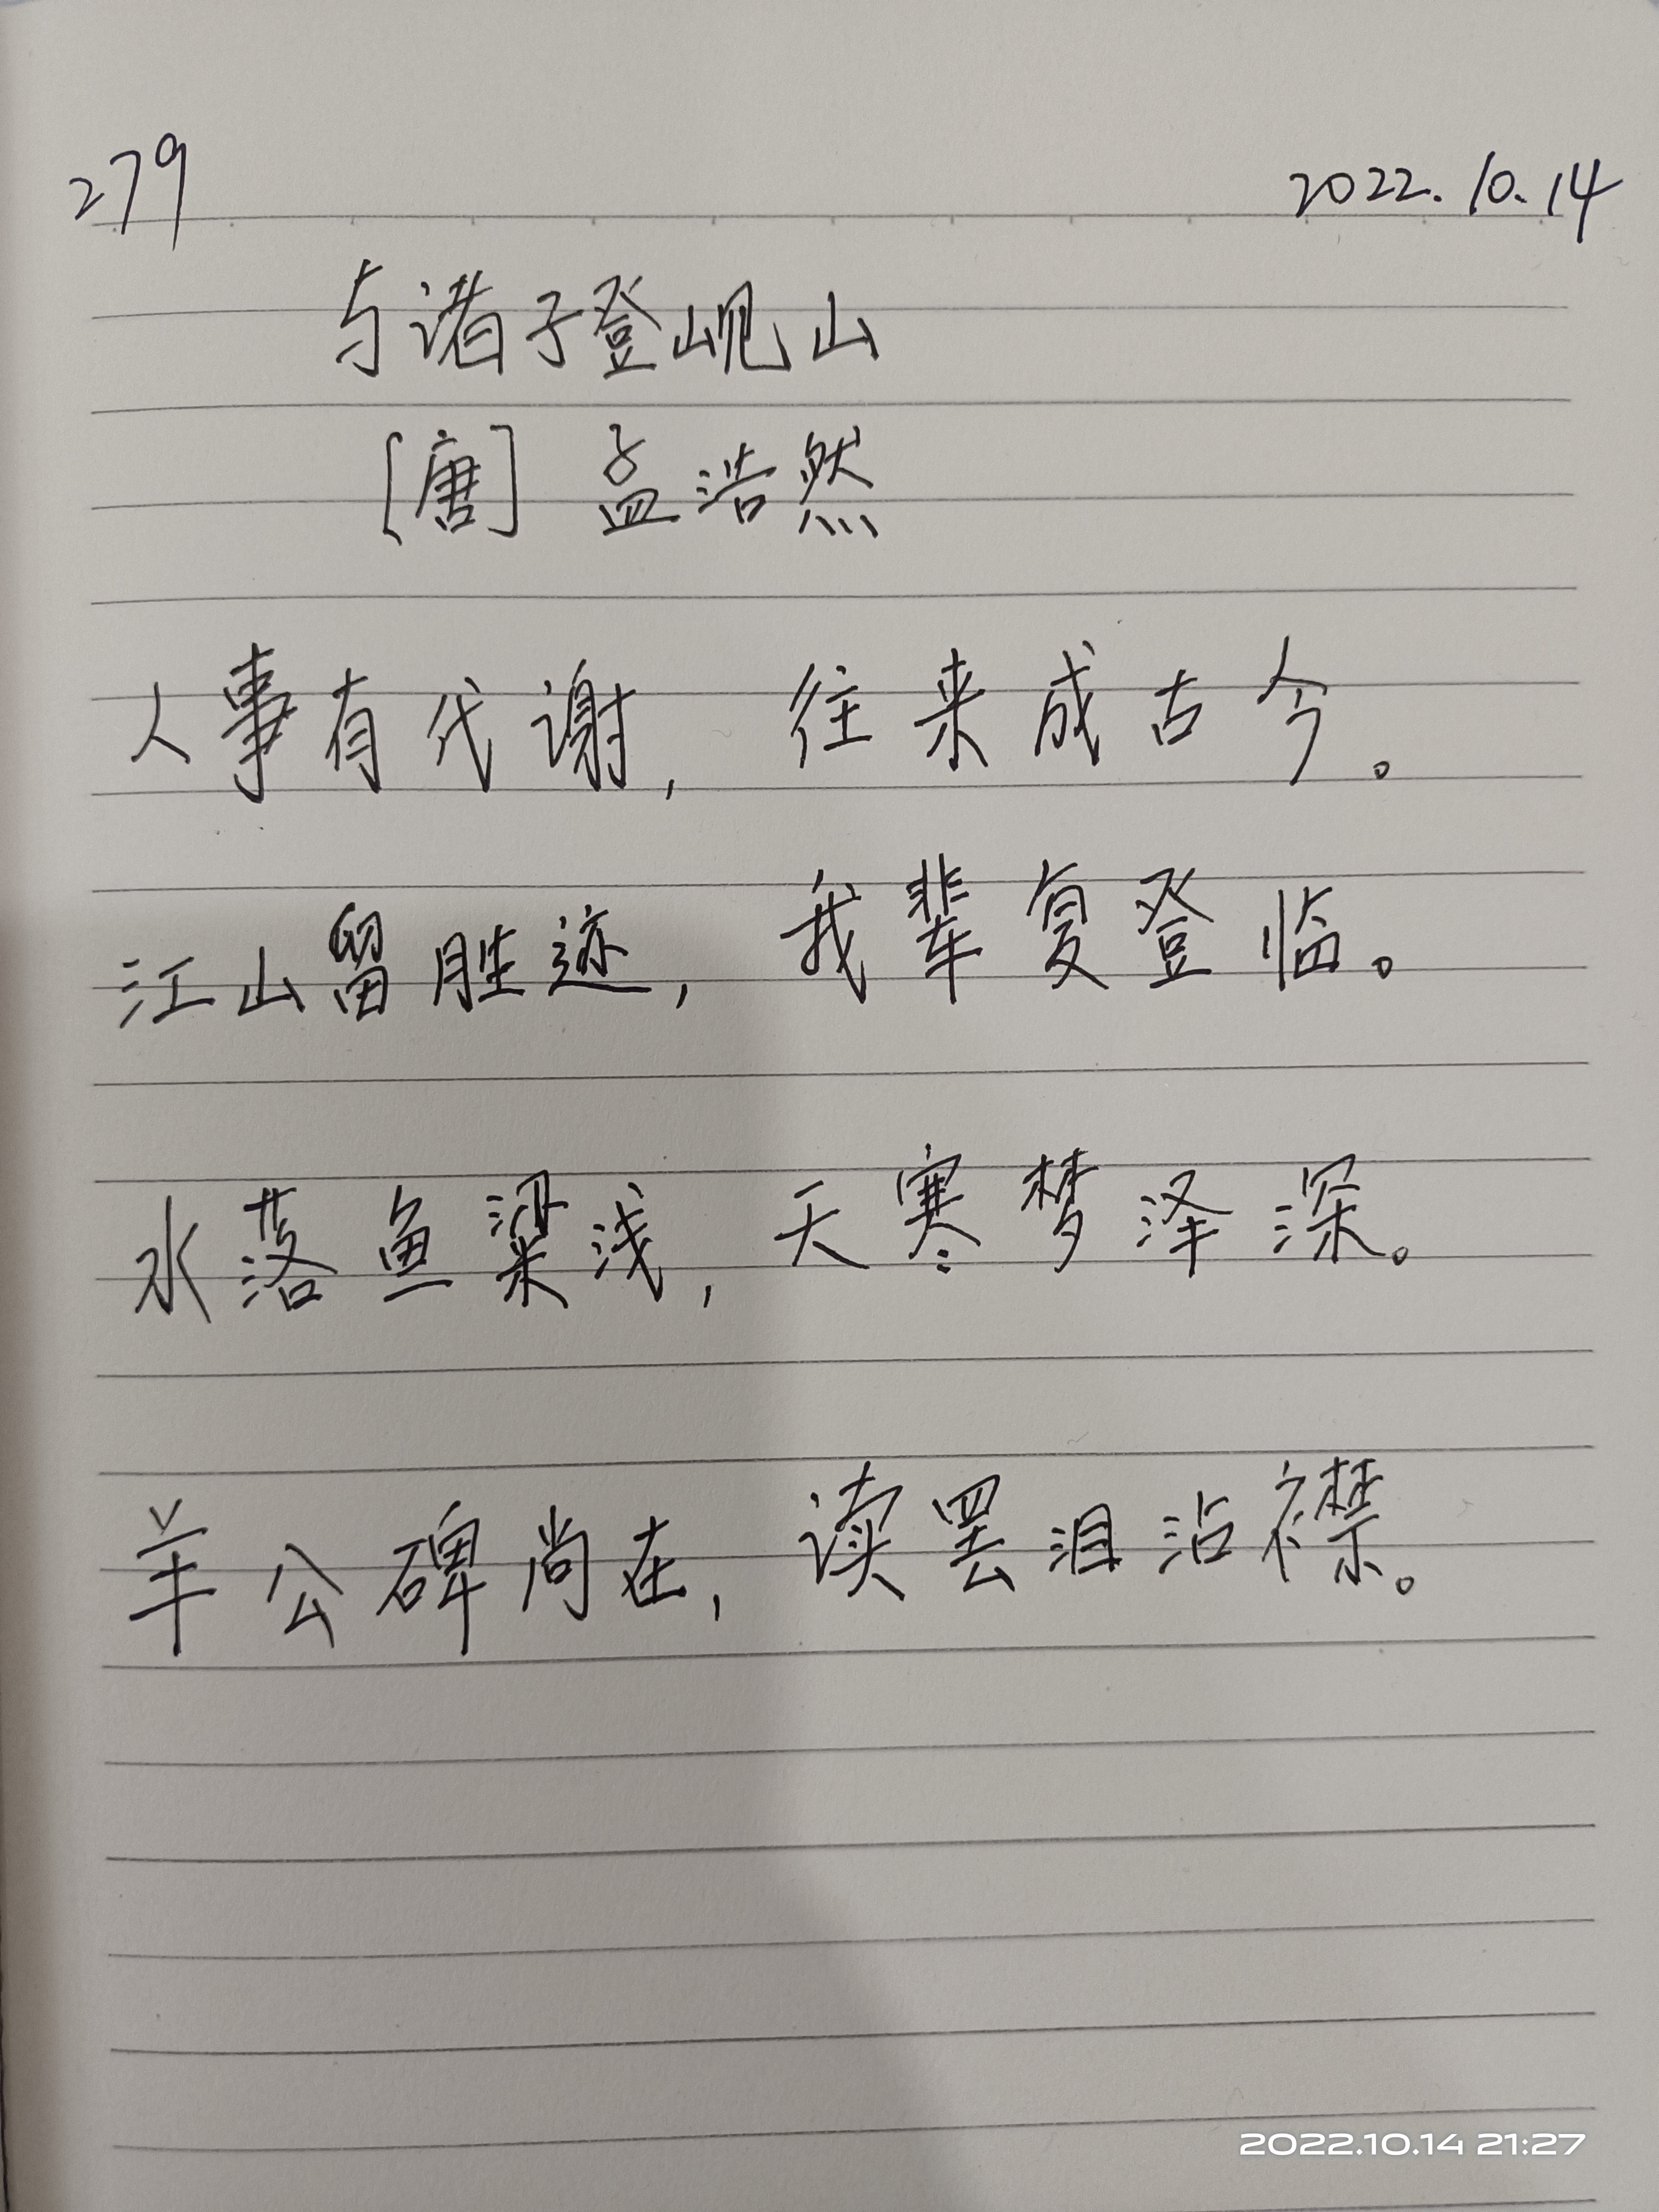 279 2022.10.14
与诸子登岘山
[唐] 孟浩然
人事有代谢，往来成古今。
江山留胜迹，我辈复登临。
水落鱼梁浅，天寒梦泽深。
羊公碑尚在，读罢泪沾襟。
2022.10.14 21:27